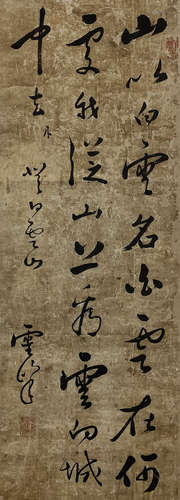 山以白雲名白雲在何
處我從山上看雲向城
中去 登白雲山
雲